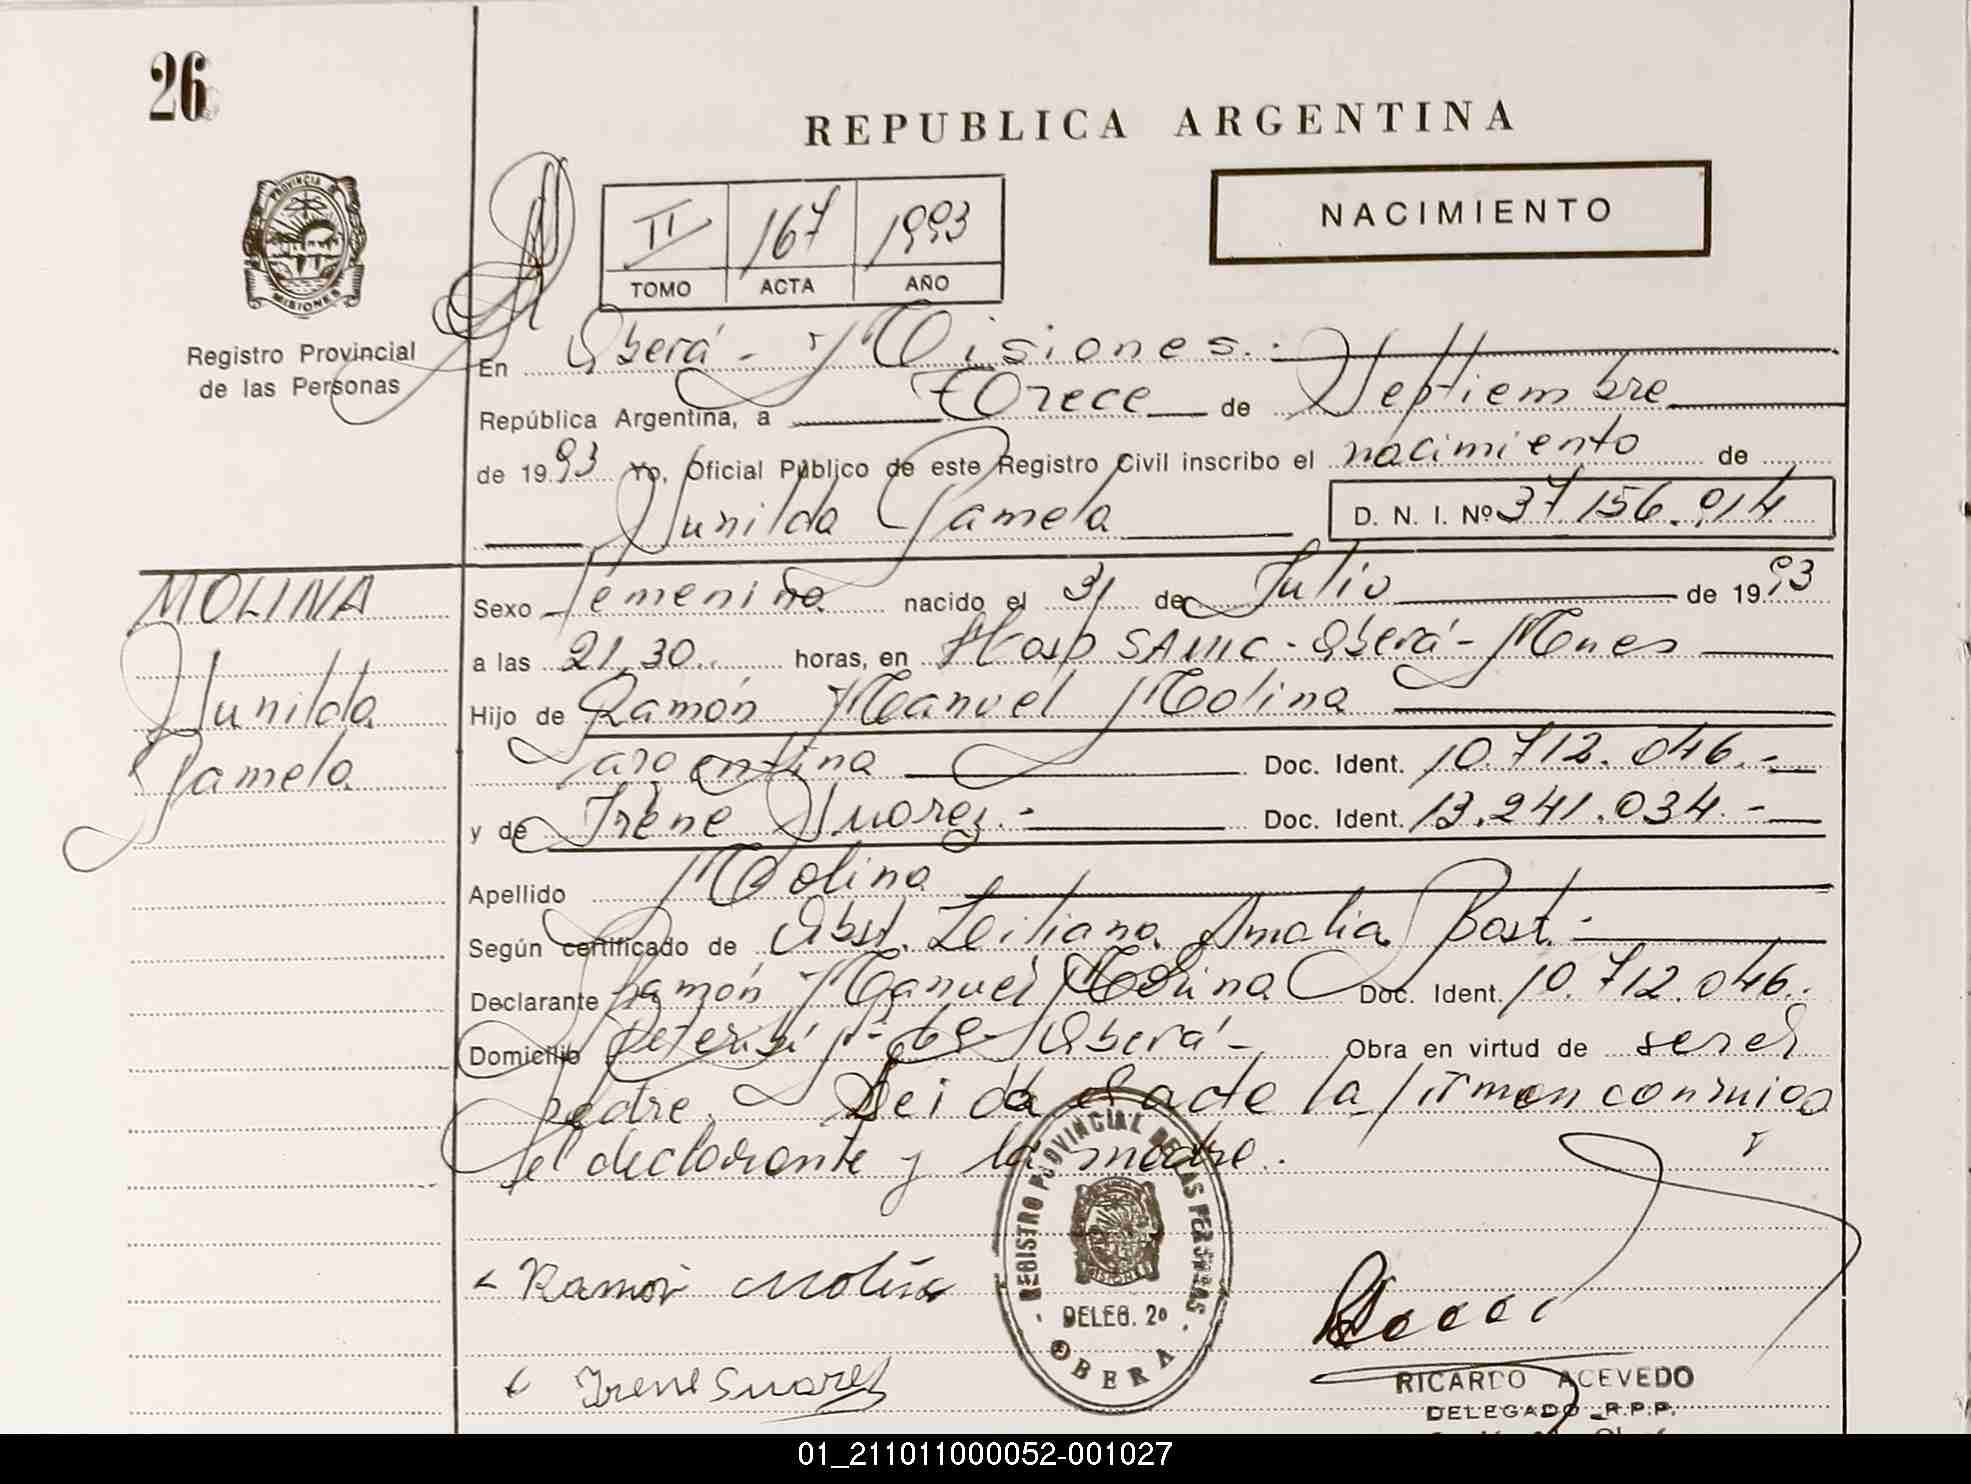 26
REPUBLICA ARGENTINA
PROVINCIA DE
MISIONES
Registro Provincial
de las Personas
II 167 1993
TOMO ACTA AÑO
NACIMIENTO
En Oberá - Misiones.-
República Argentina, a Trece de Septiembre
de 1993 Yo, Oficial Público de este Registro Civil inscribo el nacimiento de
Sunilda Pamela D. N. I. Nº 37.156.014
MOLINA
Sunilda
Pamela
Sexo Femenino nacido el 31 de Julio de 1993
a las 21,30 horas, en Hosp SAMIC - Oberá - Mnes
Hijo de Ramón Manuel Molina
argentina Doc. Ident. 10.712.046.-
y de Irene Suarez.- Doc. Ident. 13.241.034.-
Apellido Molina
Según certificado de Obst. Liliana Amalia Bast.-
Declarante Ramón Manuel Molina Doc. Ident. 10.712.046.
Domicilio Oberá - Obra en virtud de ser el
padre. Leida el acta la firman conmigo
el declarante y la madre.
REGISTRO PROVINCIAL DE LAS PERSONAS
MISIONES
DELEG. 20
OBERA
Ramon Molina
Irene Suarez
RICARDO ACEVEDO
DELEGADO R.P.P.
01_211011000052-001027